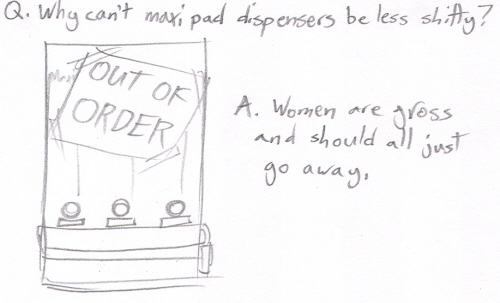 Q. Why can't maxi pad dispensers be less shitty?
OUT OF
ORDER
A. Women are gross
and should all just
go away.